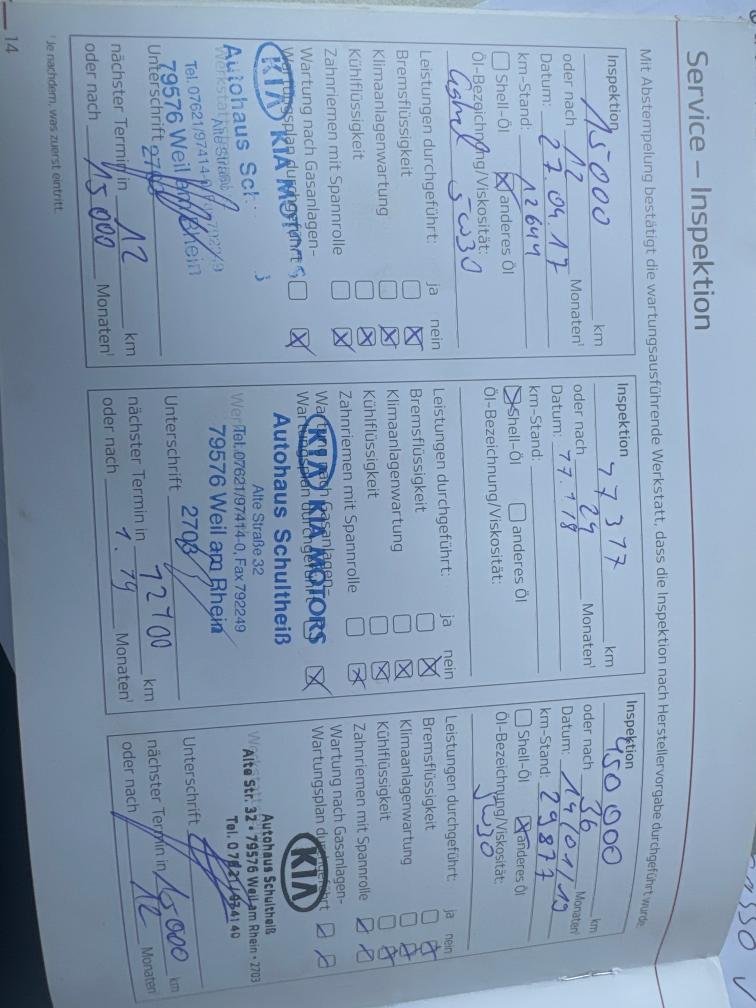 Service – Inspektion
Mit Abstempelung bestätigt die wartungsausführende Werkstatt, dass die Inspektion nach Herstellervorgabe durchgeführt wurde.
Inspektion 15000 km
oder nach 12 Monaten¹
Datum: 27.04.17
km-Stand: 12644
Shell-Öl anderes Öl
Öl-Bezeichnung/Viskosität:
5w30
Leistungen durchgeführt: ja nein
Bremsflüssigkeit
Klimaanlagenwartung
Kühlflüssigkeit
Zahnriemen mit Spannrolle
Wartung nach Gasanlagen-
Wartungsplan durchgeführt
KIA KIA MOTORS
Autohaus Sch
Alte Straße
Tel. 07621/97414
79576 Weil am Rhein
Unterschrift
nächster Termin in 12 km
oder nach 15000 Monaten¹
Inspektion 17377 km
oder nach 24 Monaten¹
Datum: 17.1.18
km-Stand:
Shell-Öl anderes Öl
Öl-Bezeichnung/Viskosität:
Leistungen durchgeführt: ja nein
Bremsflüssigkeit
Klimaanlagenwartung
Kühlflüssigkeit
Zahnriemen mit Spannrolle
Wartung nach Gasanlagen-
Wartungsplan durchgeführt
KIA KIA MOTORS
Autohaus Schultheiß
Alte Straße 32
Tel. 07621/97414-0, Fax 792249
79576 Weil am Rhein
2703
Unterschrift
nächster Termin in 12100 km
oder nach 1.19 Monaten¹
Inspektion 450000 km
oder nach 36 Monaten¹
Datum: 14/01/19
km-Stand: 29877
Shell-Öl anderes Öl
Öl-Bezeichnung/Viskosität:
5w30
Leistungen durchgeführt: ja nein
Bremsflüssigkeit
Klimaanlagenwartung
Kühlflüssigkeit
Zahnriemen mit Spannrolle
Wartung nach Gasanlagen-
Wartungsplan durchgeführt
KIA
Autohaus Schultheiß
Alte Str. 32 • 79576 Weil am Rhein • 2703
Tel. 07621/974140
Unterschrift
nächster Termin in 15000 km
oder nach 12 Monaten¹
¹ Je nachdem, was zuerst eintritt.
14